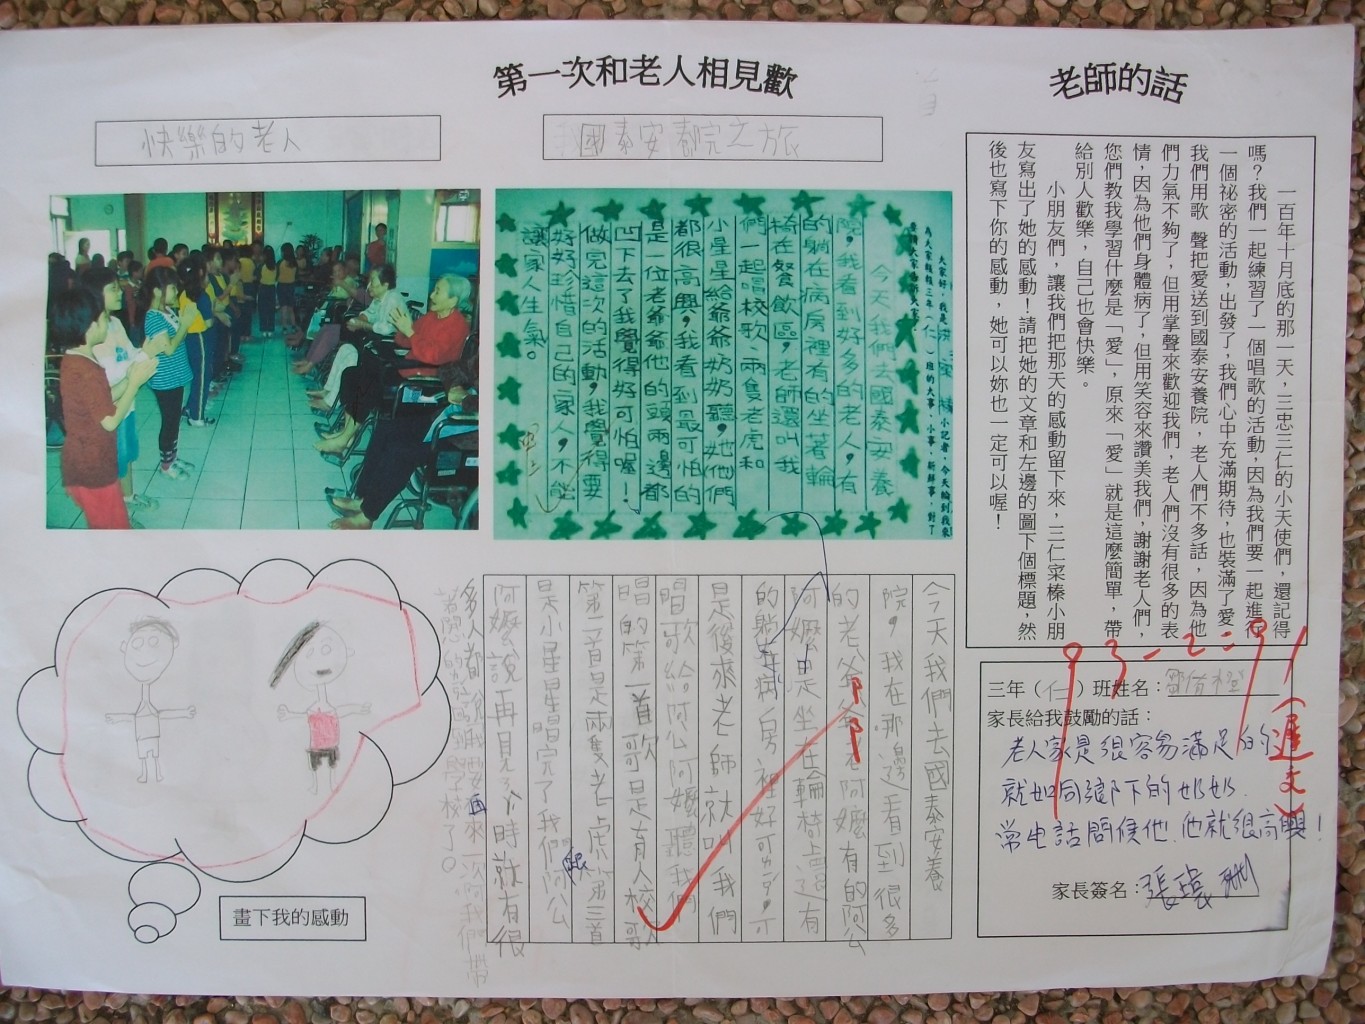 第一次和老人相見歡
老師的話
快樂的老人
國泰安養院之旅
一百年十月底的那一天，三忠三仁的小天使們，還記得
嗎？我們一起練習了一個唱歌的活動，因為我們要一起進行
一個祕密的活動，出發了，我們心中充滿期待，也裝滿了愛
我們用歌 聲把愛送到國泰安養院，老人們不多話，因為他
們力氣不夠了，但用掌聲來歡迎我們，老人們沒有很多的表
情，因為他們身體病了，但用笑容來讚美我們，謝謝老人們，
您們教我學習什麼是「愛」，原來「愛」就是這麼簡單，帶
給別人歡樂，自己也會快樂。
小朋友們，讓我們把那天的感動留下來，三仁寀榛小朋
友寫出了她的感動！請把她的文章和左邊的圖下個標題，然
後也寫下你的感動，她可以妳也一定可以喔！
大家好，我是 小記者，今天輪到我來
為大家報報三年（仁）班的大事、小事、新鮮事，對了
今天我們去國泰安養
院，我看到好多的老人，有
的躺在病房裡有的坐著輪
椅在餐飲區，老師還叫我
們一起唱校歌、兩隻老虎和
小星星給爺爺奶奶聽，她他們
都很高興，我看到最可怕的
是一位老爺爺他的頭兩邊都
凹下去了我覺得好可怕喔！
做完這次的活動，我覺得要
好好珍惜自己的家人，不能
讓家人生氣。
今天我們去國泰安養
院，我在那邊看到很多
的老爺爺老阿嬤有的阿公
阿嬤是坐在輪椅上還有
的躺在病房裡好可
是後來老師就叫我們
唱歌給阿公阿嬤聽我們
唱的第一首歌是有人校歌
第二首是兩隻老虎第三首
是小星星唱完了我們阿公
阿嬤說再見了 時就有很
多人都說 要再來一次阿我們帶
學校了。
畫下我的感動
93-2=91
(遲交)
三年（仁）班姓名：
家長給我鼓勵的話：
老人家是很容易滿足的
就如同鄉下的奶奶.
常電話問候他.他就很高興！
家長簽名：張